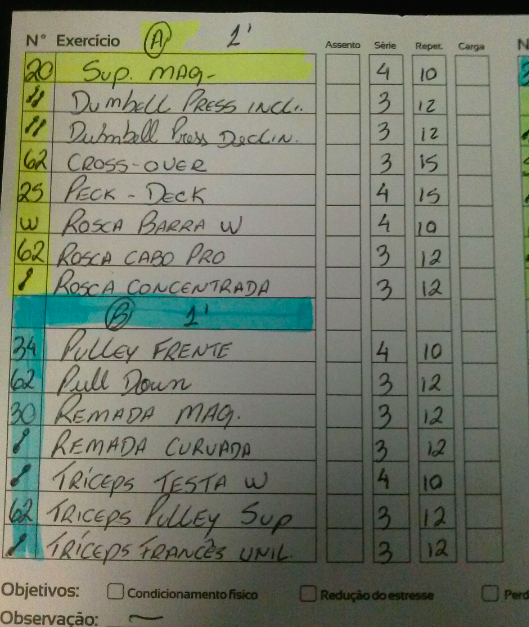 N° Exercício (A) 1' Assento Série Repet. Carga
20 SUP. MAQ- 4 10
" DUMBELL PRESS INCL. 3 12
" Dubmbell Press DECLIN. 3 12
62 CROSS-OVER 3 15
25 PECK-DECK 4 15
W ROSCA BARRA W 4 10
62 ROSCA CABO PRO 3 12
ROSCA CONCENTRADA 3 12
(B) 1'
34 PULLEY FRENTE 4 10
62 Pull Down 3 12
30 REMADA MAQ. 3 12
REMADA CURVADA 3 12
TRÍCEPS TESTA W 4 10
62 TRICEPS PULLEY SUP 3 12
TRÍCEPS FRANCÊS UNIL. 3 12
Objetivos: Condicionamento físico Redução do estresse Perd
Observação: